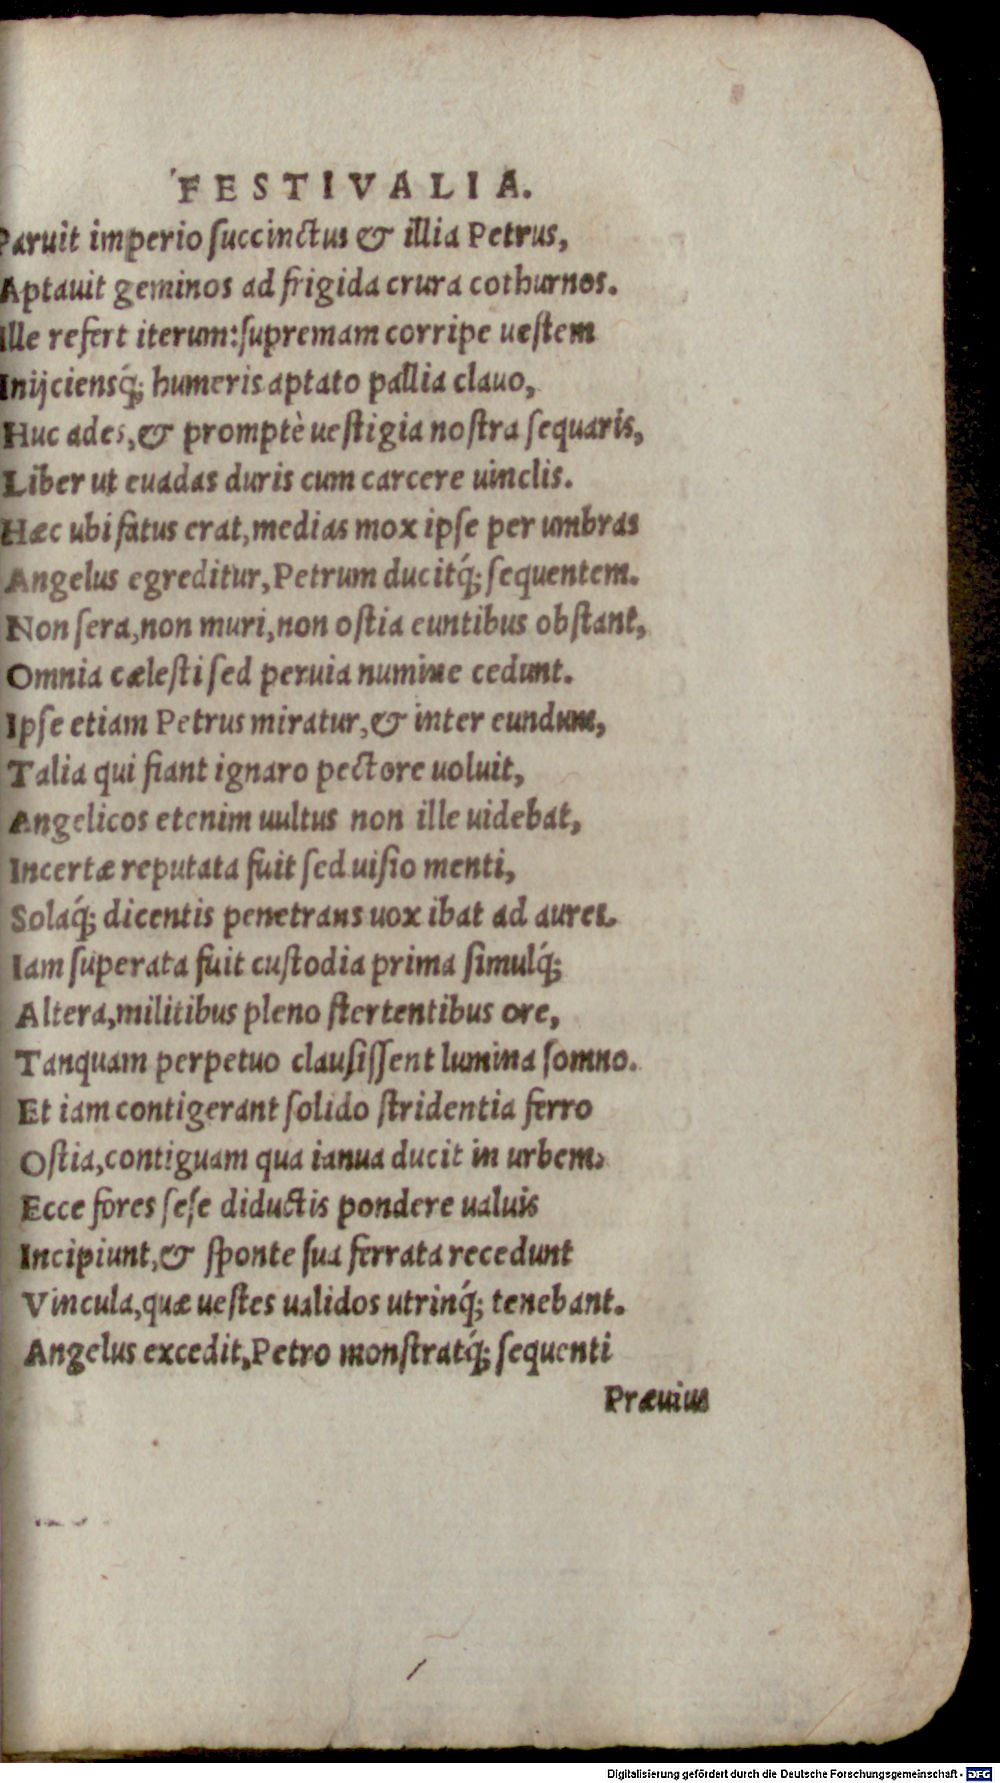 FESTIVALIA.
Paruit imperio ſuccinctus & illia Petrus,
Aptauit geminos ad frigida crura cothurnos.
Ille refert iterum: ſupremam corripe ueſtem
Inijciensq́; humeris aptato pallia clauo,
Huc ades, & promptè ueſtigia noſtra ſequaris,
Liber ut euadas duris cum carcere uinclis.
Hæc ubi fatus erat, medias mox ipſe per umbras
Angelus egreditur, Petrum ducitq́; ſequentem.
Non ſera, non muri, non oſtia euntibus obſtant,
Omnia cæleſti ſed peruia numine cedunt.
Ipſe etiam Petrus miratur, & inter eundum,
Talia qui fiant ignaro pectore uoluit,
Angelicos etenim uultus non ille uidebat,
Incertæ reputata fuit ſed uiſio menti,
Solaq́; dicentis penetrans uox ibat ad aures.
Iam ſuperata fuit cuſtodia prima ſimulq́;
Altera, militibus pleno ſtertentibus ore,
Tanquam perpetuo clauſiſſent lumina ſomno.
Et iam contigerant ſolido ſtridentia ferro
Oſtia, contiguam qua ianua ducit in urbem,
Ecce fores ſeſe diductis pondere ualuis
Incipiunt, & ſponte ſua ferrata recedunt
Vincula, quæ ueſtes ualidos utrinq́; tenebant.
Angelus excedit, Petro monſtratq́; ſequenti
Præuius
Digitalisierung gefördert durch die Deutsche Forschungsgemeinschaft - DFG